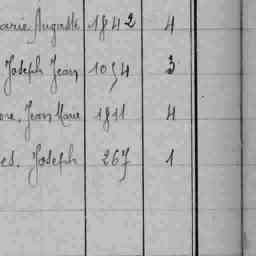 arie Auguste 1842 4
Joseph Jean 1054 3
Jean Marie 1811 4
es. Joseph 267 1